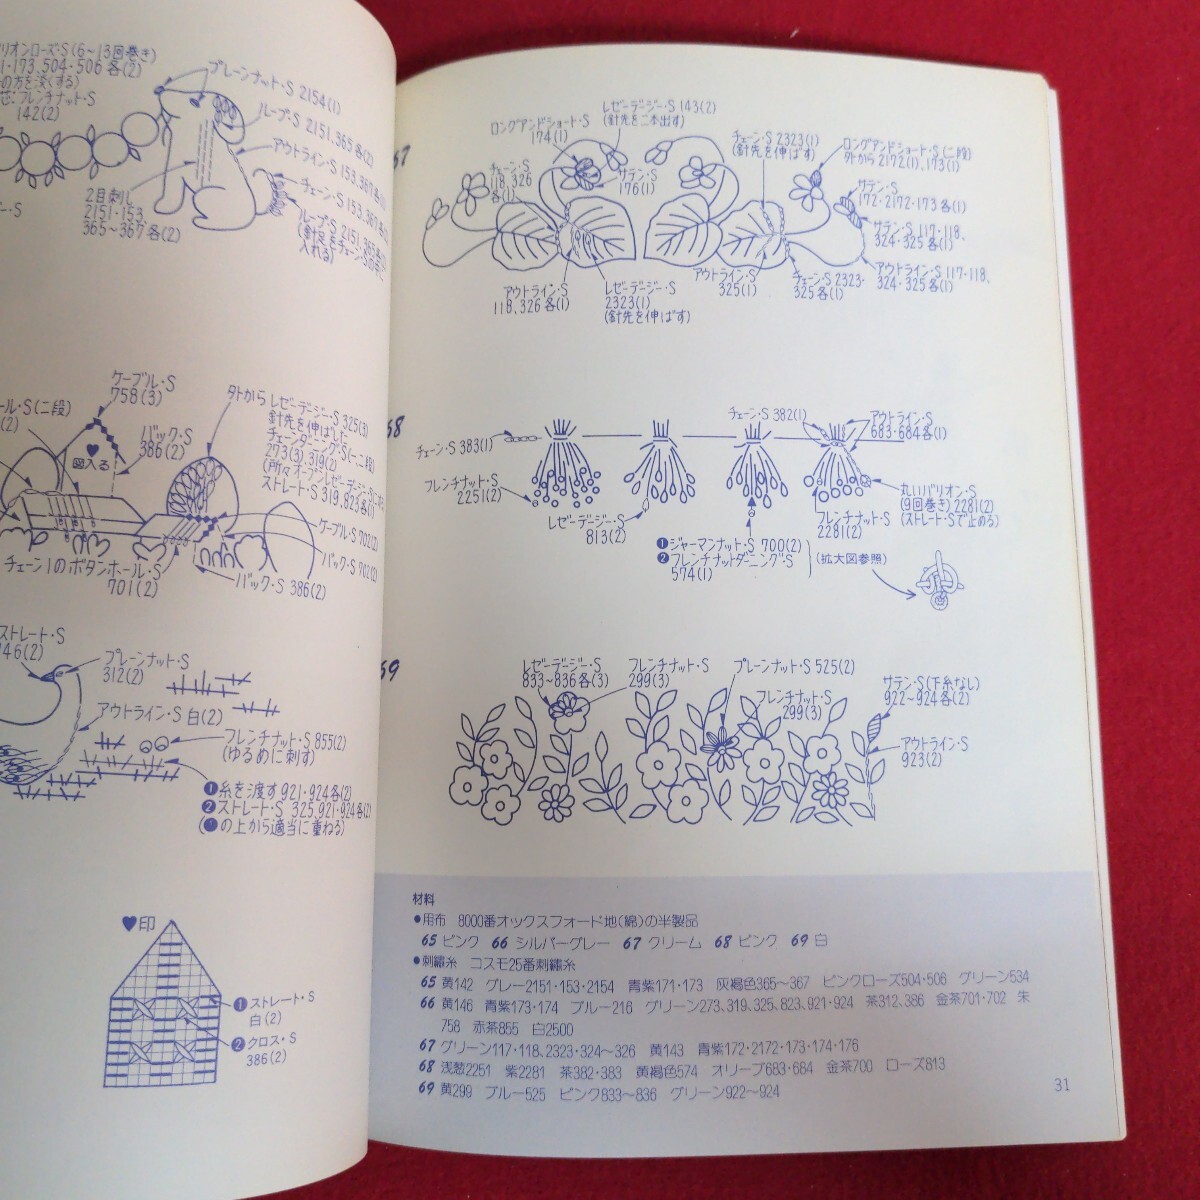 リオンローズ・S(6~13回巻き)
1・173、504・506 各(2)
の方を淡くする)
ぜ:フレンチナット・S
142(2)
プレーンナット・S 2154(1)
ループ・S 2151、365各(2)
アウトライン・S 153、367各
チェーン・S 153、367各
ループ・S 2151、365各
入れる)
2目刺し
2151・153、
365~367 各(2)
ケーブル・S
758(3)
ール・S(二段)
(2)
バック・S
386(2)
♥
図入る
外から レゼーデージー・S 325(3)
針先を伸ばした
チェーンダーニング・S(一、二段)
273(3)、319(2)
ストレート・S 319、823各(1)
ケーブル・S 702(2)
バック・S 702(2)
バック・S 386(2)
チェーン1のボタンホール・S
701(2)
ストレート・S
46(2)
プレーンナット・S
312(2)
アウトライン・S 白(2)
フレンチナット・S 855(2)
(ゆるめに刺す)
❶糸を渡す 921・924各(2)
❷ストレート・S 325、921・924各(2)
の上から適当に重ねる)
♥印
❶ストレート・S
白(2)
❷クロス・S
386(2)
67
レゼーデージー・S 143(2)
(針先を二本出す)
ロングアンドショート・S
174(1)
チェーン・S
118、326
各(1)
サテン・S
176(1)
チェーン・S 2323(1)
(針先を伸ばす)
ロングアンドショート・S(二段)
外から 2172(1)、173(1)
サテン・S
172・2172・173 各(1)
サテン・S 117・118、
324・325 各(1)
アウトライン・S 117・118、
324・325 各(1)
チェーン・S 2323・
325 各(1)
アウトライン・S
325(1)
アウトライン・S
118、326 各(1)
レゼーデージー・S
2323(1)
(針先を伸ばす)
68
チェーン・S 383(1)
チェーン・S 382(1)
アウトライン・S
683・684各(1)
フレンチナット・S
2251(2)
レゼーデージー・S
813(2)
丸いバリオン・S
(9回巻き) 2281(2)
(ストレート・Sで止める)
フレンチナット・S
2281(2)
❶ジャーマンナット・S 700(2)
❷フレンチナットダーニング・S
574(1)
(拡大図参照)
69
レゼーデージー・S
833~836各(3)
フレンチナット・S
299(3)
プレーンナット・S 525(2)
フレンチナット・S
299(3)
サテン・S(下糸なし)
922~924各(2)
アウトライン・S
923(2)
材料
●用布 8000番オックスフォード地(綿)の半製品
65 ピンク 66 シルバーグレー 67 クリーム 68 ピンク 69 白
●刺繡糸 コスモ25番刺繡糸
65 黄142 グレー2151・153・2154 青紫171・173 灰褐色365~367 ピンクローズ504・506 グリーン534
66 黄146 青紫173・174 ブルー216 グリーン273、319、325、823、921・924 茶312、386 金茶701・702 朱
758 赤茶855 白2500
67 グリーン117・118、2323・324~326 黄143 青紫172・2172・173・174・176
68 浅葱2251 紫2281 茶382・383 黄褐色574 オリーブ683・684 金茶700 ローズ813
69 黄299 ブルー525 ピンク833~836 グリーン922~924
31